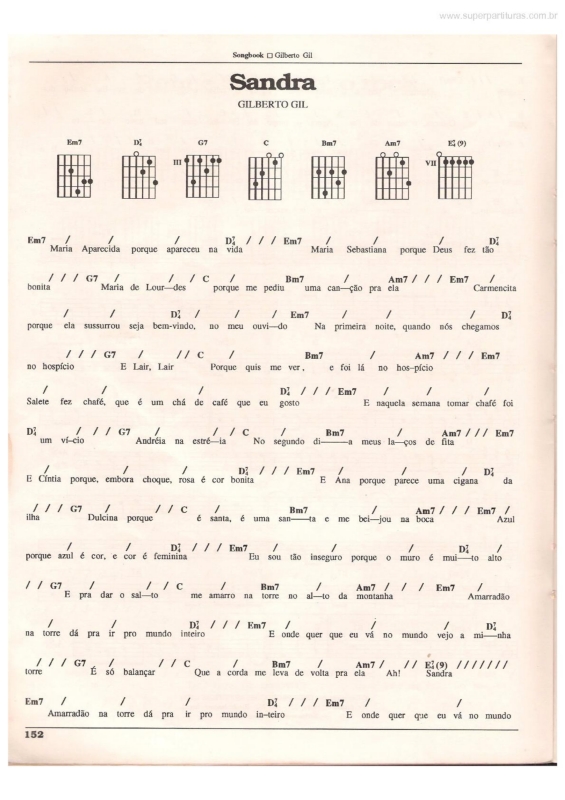 www.superpartituras.com.br
Songbook □ Gilberto Gil
Sandra
GILBERTO GIL
Em7 D7/4 G7 C Bm7 Am7 E7/4(9)
III VII
Em7 / / / D7/4 / / / Em7 / / / D7/4
Maria Aparecida porque apareceu na vida Maria Sebastiana porque Deus fez tão
/ / / G7 / / / C / Bm7 / Am7 / / / Em7 /
bonita Maria de Lour—des porque me pediu uma can—ção pra ela Carmencita
/ / D7/4 / / / Em7 / / / D7/4
porque ela sussurrou seja bem-vindo, no meu ouvi—do Na primeira noite, quando nós chegamos
/ / / G7 / / / C / Bm7 / Am7 / / / Em7
no hospício E Lair, Lair Porque quis me ver, e foi lá no hos-pício
/ / / D7/4 / / / Em7 / / /
Salete fez chafé, que é um chá de café que eu gosto E naquela semana tomar chafé foi
D7/4 / / / G7 / / / C / Bm7 / Am7 / / / Em7
um ví—cio Andréia na estré—ia No segundo di——a meus la—ços de fita
/ / / D7/4 / / / Em7 / / / D7/4
E Cíntia porque, embora choque, rosa é cor bonita E Ana porque parece uma cigana da
/ / / G7 / / / C / Bm7 / Am7 / / / Em7 /
ilha Dulcina porque é santa, é uma san——ta e me bei—jou na boca Azul
/ / D7/4 / / / Em7 / / / D7/4 /
porque azul é cor, e cor é feminina Eu sou tão inseguro porque o muro é mui—to alto
/ / G7 / / / C / Bm7 / Am7 / / / Em7
E pra dar o sal—to me amarro na torre no al—to da montanha Amarradão
/ / / D7/4 / / / Em7 / / / D7/4
na torre dá pra ir pro mundo inteiro E onde quer que eu vá no mundo vejo a mi—nha
/ / / G7 / / / C / Bm7 / Am7 / / / E7/4(9) / / / / / / /
torre É só balançar Que a corda me leva de volta pra ela Ah! Sandra
Em7 / / / D7/4 / / / Em7 / / /
Amarradão na torre dá pra ir pro mundo in-teiro E onde quer que eu vá no mundo
152